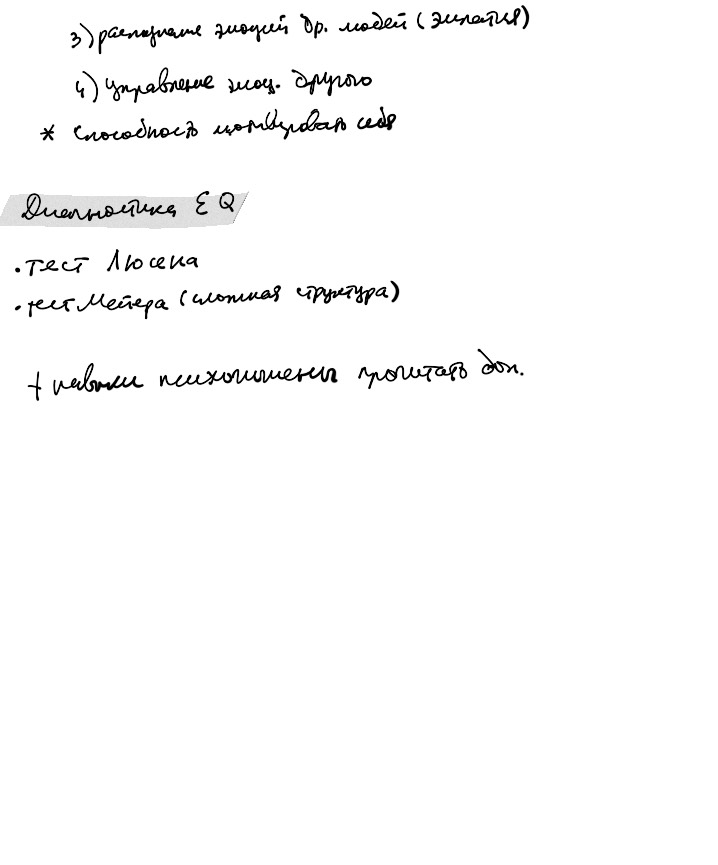 3) распознание эмоций др. людей (эмпатия)
4) управление эмоц. другого
* способность мотивировать себя
Диагностика EQ
• тест Люсена
• тест Мейера (сложная структура)
+ навыки психогигиены прочитать доп.